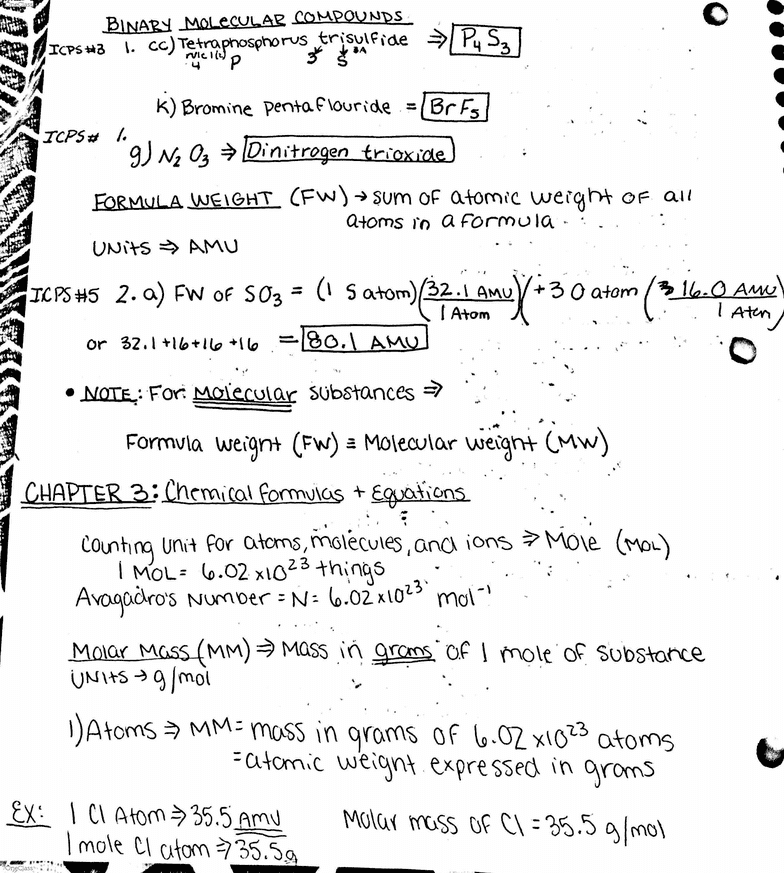 BINARY MOLECULAR COMPOUNDS
ICPS#3 1. cc) Tetraphosphorus trisulfide ⇒ P₄S₃
4 P 3 S 3A
K) Bromine pentaflouride = BrF₅
ICPS# 1.
g) N₂O₃ ⇒ Dinitrogen trioxide
FORMULA WEIGHT (FW) → sum of atomic weight of all
atoms in a formula.
UNITS ⇒ AMU
ICPS#5 2. a) FW OF SO₃ = (1 S atom)(32.1 AMU / 1 Atom)(+ 3 O atom (16.0 AMU / 1 Atom)
or 32.1+16+16+16 = 80.1 AMU
• NOTE: For Molecular substances ⇒
Formula weight (FW) ≡ Molecular weight (MW)
CHAPTER 3: Chemical formulas + Equations
Counting Unit for atoms, molecules, and ions ⇒ Mole (MOL)
1 MOL = 6.02 x10²³ things
Avagadro's Number = N = 6.02x10²³ mol⁻¹
Molar Mass (MM) ⇒ Mass in grams of 1 mole of substance
UNITS → g/mol
1) Atoms ⇒ MM = mass in grams of 6.02 x10²³ atoms
= atomic weight expressed in grams
EX: 1 Cl Atom ⇒ 35.5 AMU Molar mass of Cl = 35.5 g/mol
1 mole Cl atom ⇒ 35.5g